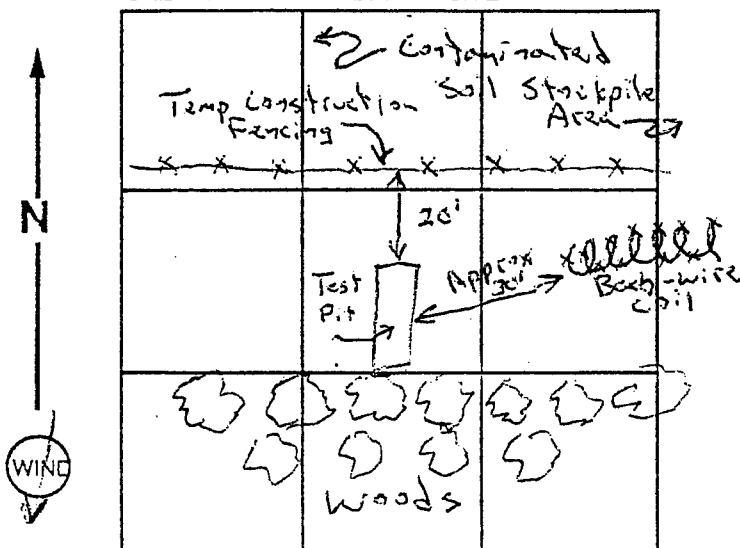 Contaminated
Soil Stockpile
Area
Temp Construction
Fencing
N
20'
Approx
30'
Test
Pit
wire
Coil
WIND
Woods